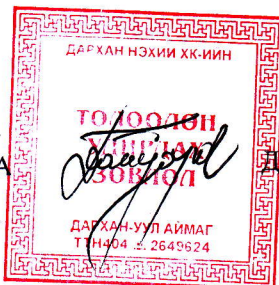 ДАРХАН НЭХИЙ ХК-ИЙН
ТӨЛӨӨЛӨН
УДИРДАХ
ЗӨВЛӨЛ
ДАРХАН-УУЛ АЙМАГ
2649624